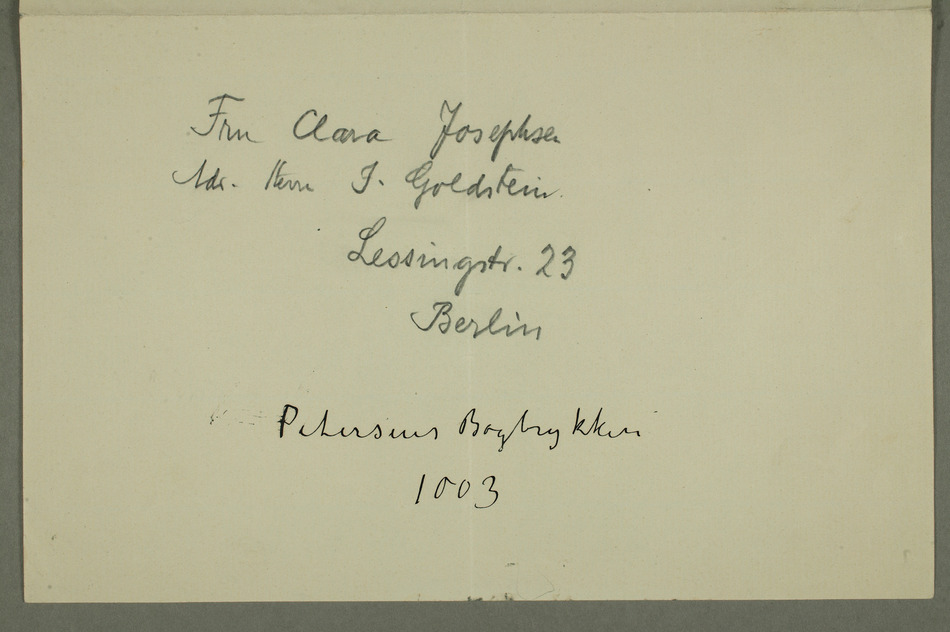 Fru Clara Josephsen
Adr. Herrn J. Goldstein.
Lessingstr. 23
Berlin
Petersens Bogtrykkeri
1003